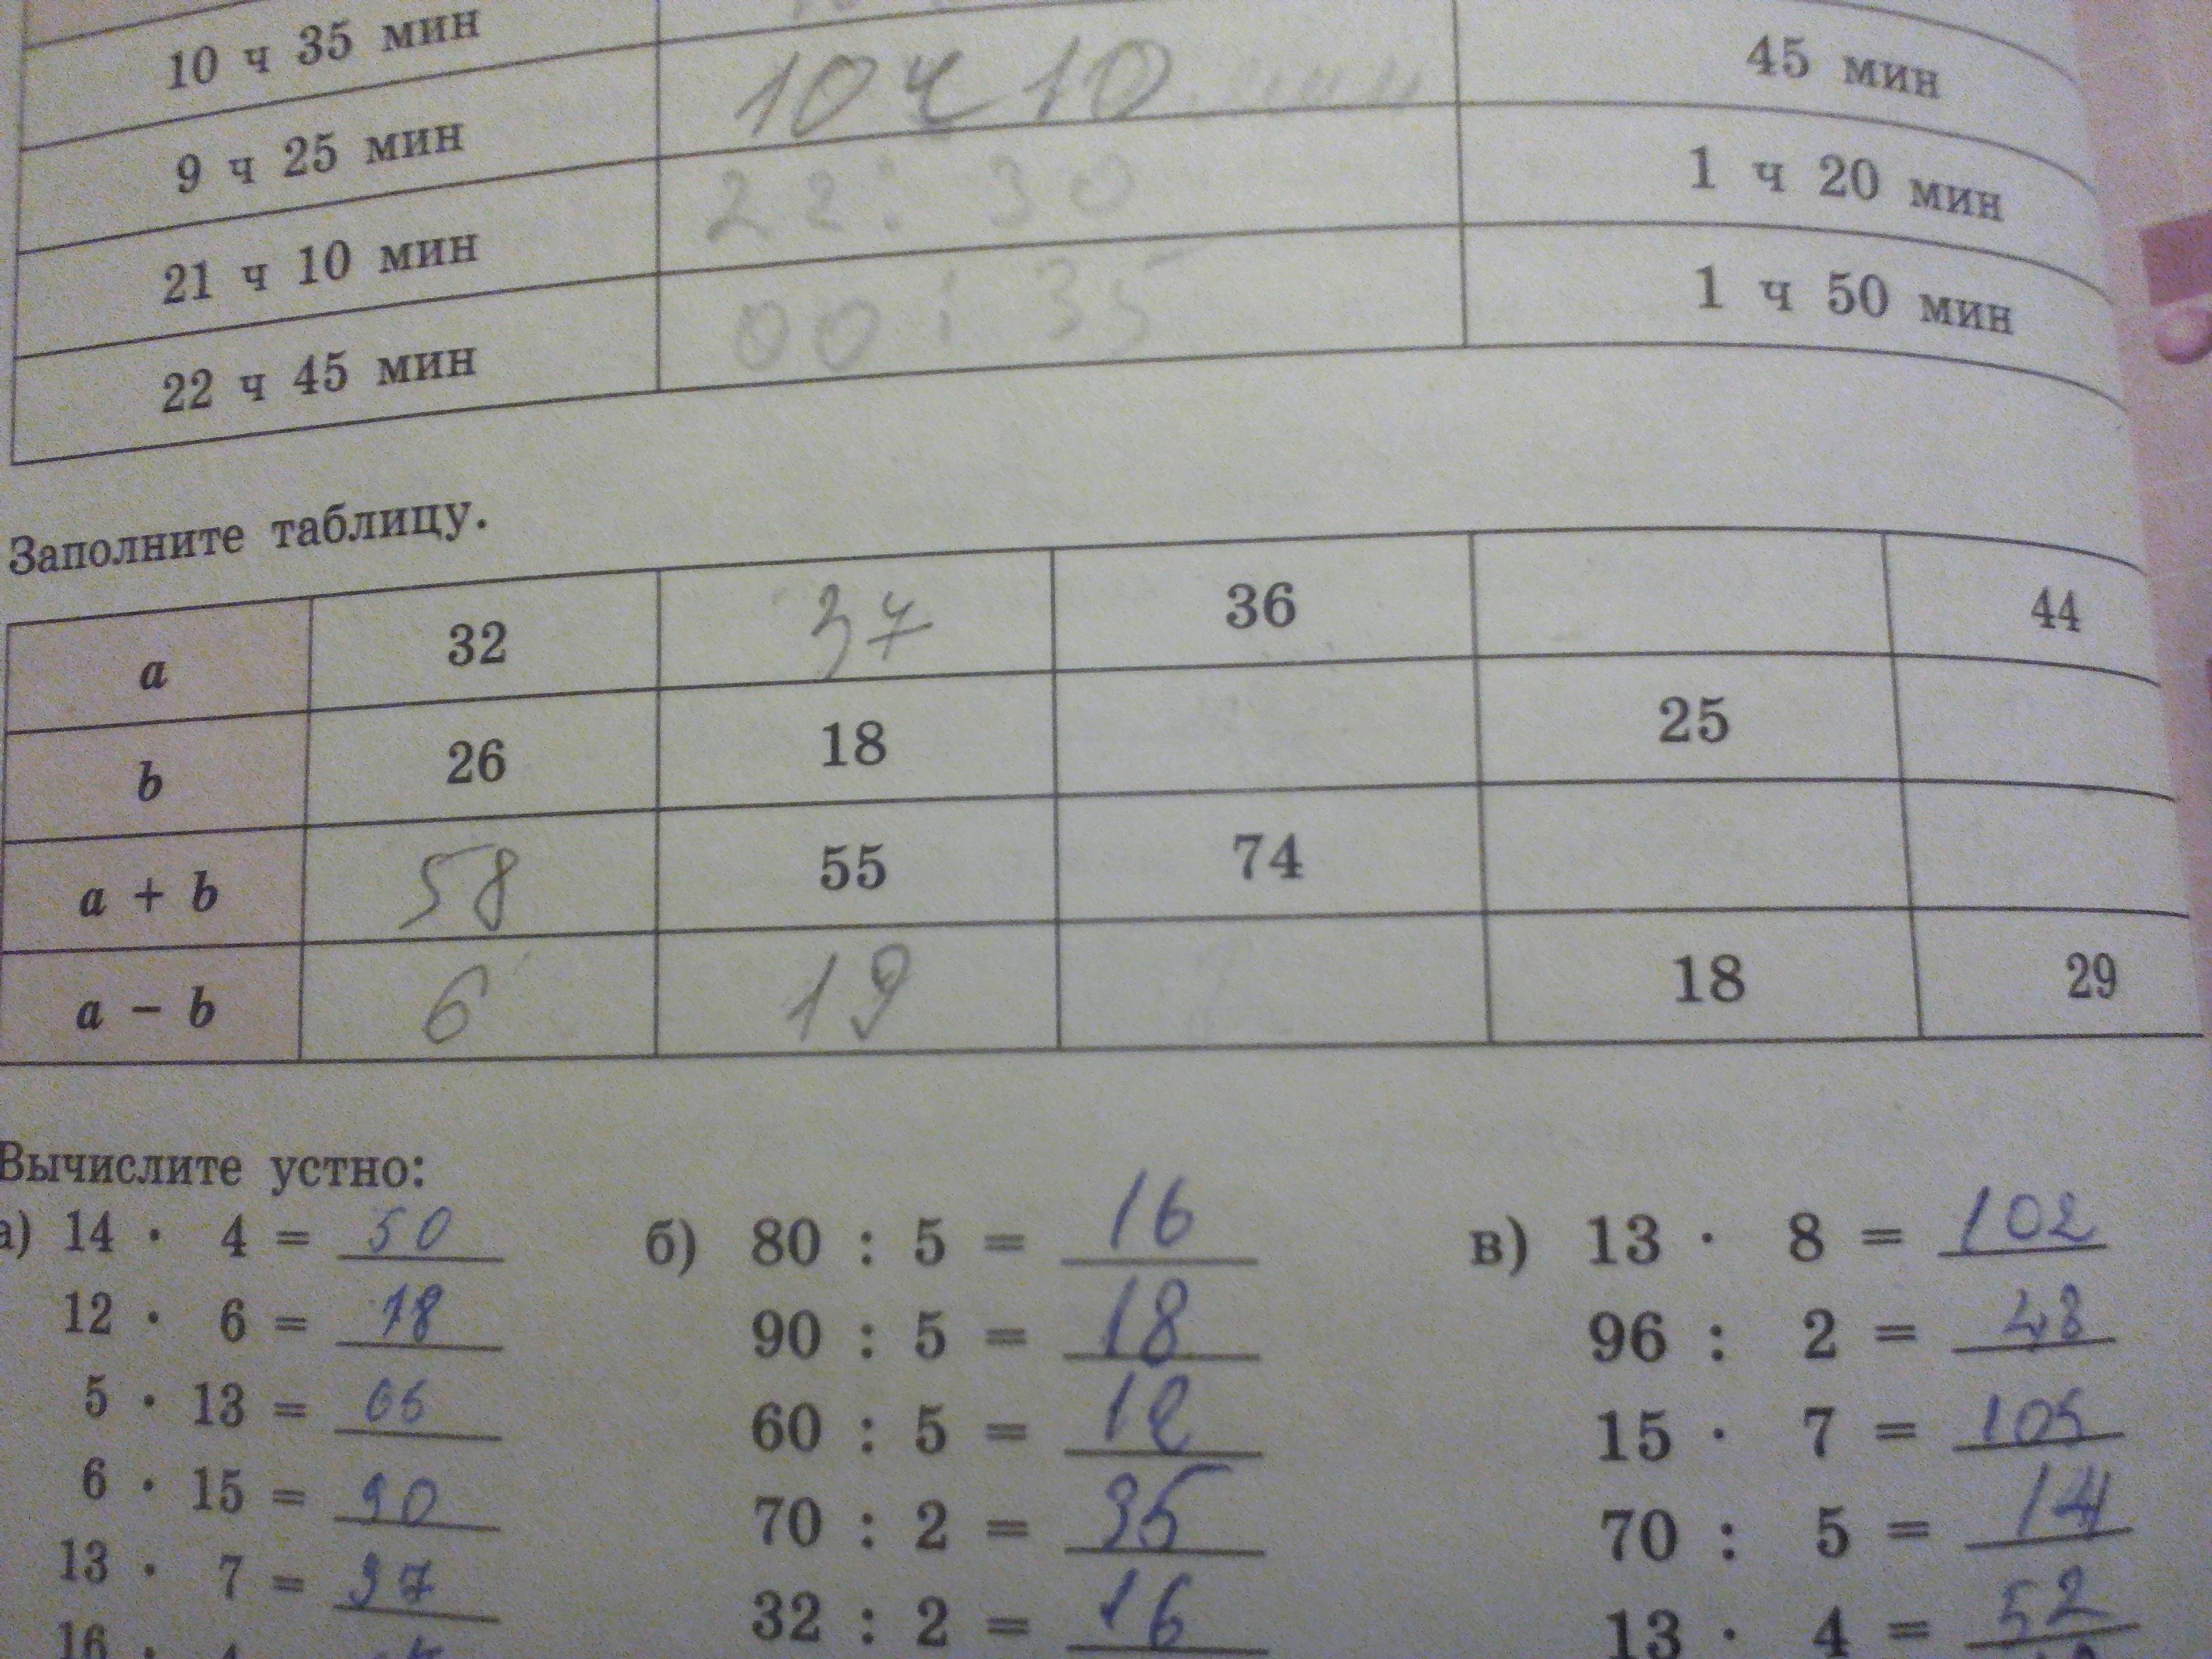 10 ч 35 мин 45 мин
9 ч 25 мин 10 ч 10 мин 1 ч 20 мин
21 ч 10 мин 22: 30 1 ч 50 мин
22 ч 45 мин 00: 35
Заполните таблицу.
a 32 37 36 44
b 26 18 25
a + b 58 55 74
a − b 6 19 18 29
Вычислите устно:
а) 14 · 4 = 50 б) 80 : 5 = 16 в) 13 · 8 = 102
12 · 6 = 78 90 : 5 = 18 96 : 2 = 48
5 · 13 = 65 60 : 5 = 12 15 · 7 = 105
6 · 15 = 90 70 : 2 = 35 70 : 5 = 14
13 · 7 = 97 32 : 2 = 16 13 · 4 = 52
16 · 4